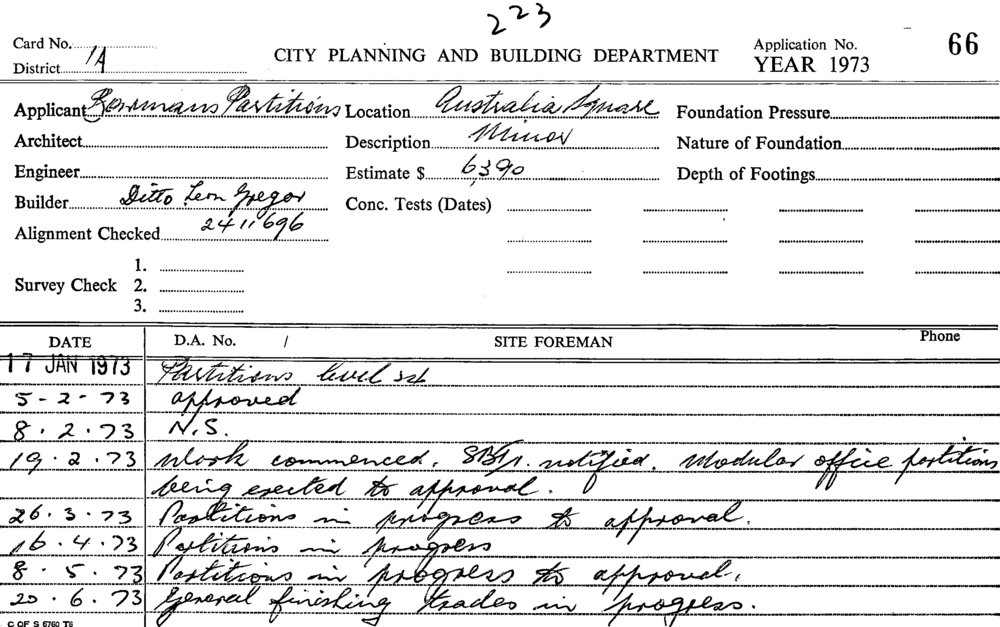 223
Card No.
District 1A
CITY PLANNING AND BUILDING DEPARTMENT
Application No. 66
YEAR 1973
Applicant Partitions Location Australia Square Foundation Pressure
Architect Description Minor Nature of Foundation
Engineer Estimate $ 6390 Depth of Footings
Builder Ditto Leon Gregor Conc. Tests (Dates)
Alignment Checked 2411696
1.
Survey Check 2.
3.
DATE D.A. No. / SITE FOREMAN Phone
17 JAN 1973 Partitions level
5-2-73 approved
8.2.73 N.S.
19.2.73 Work commenced. notified. Modular office partitions
being erected to approval.
26.3.73 Partitions in progress to approval.
16.4.73 Partitions in progress
8.5.73 Partitions in progress to approval.
20.6.73 General finishing trades in progress.
C OF S 5760 T6